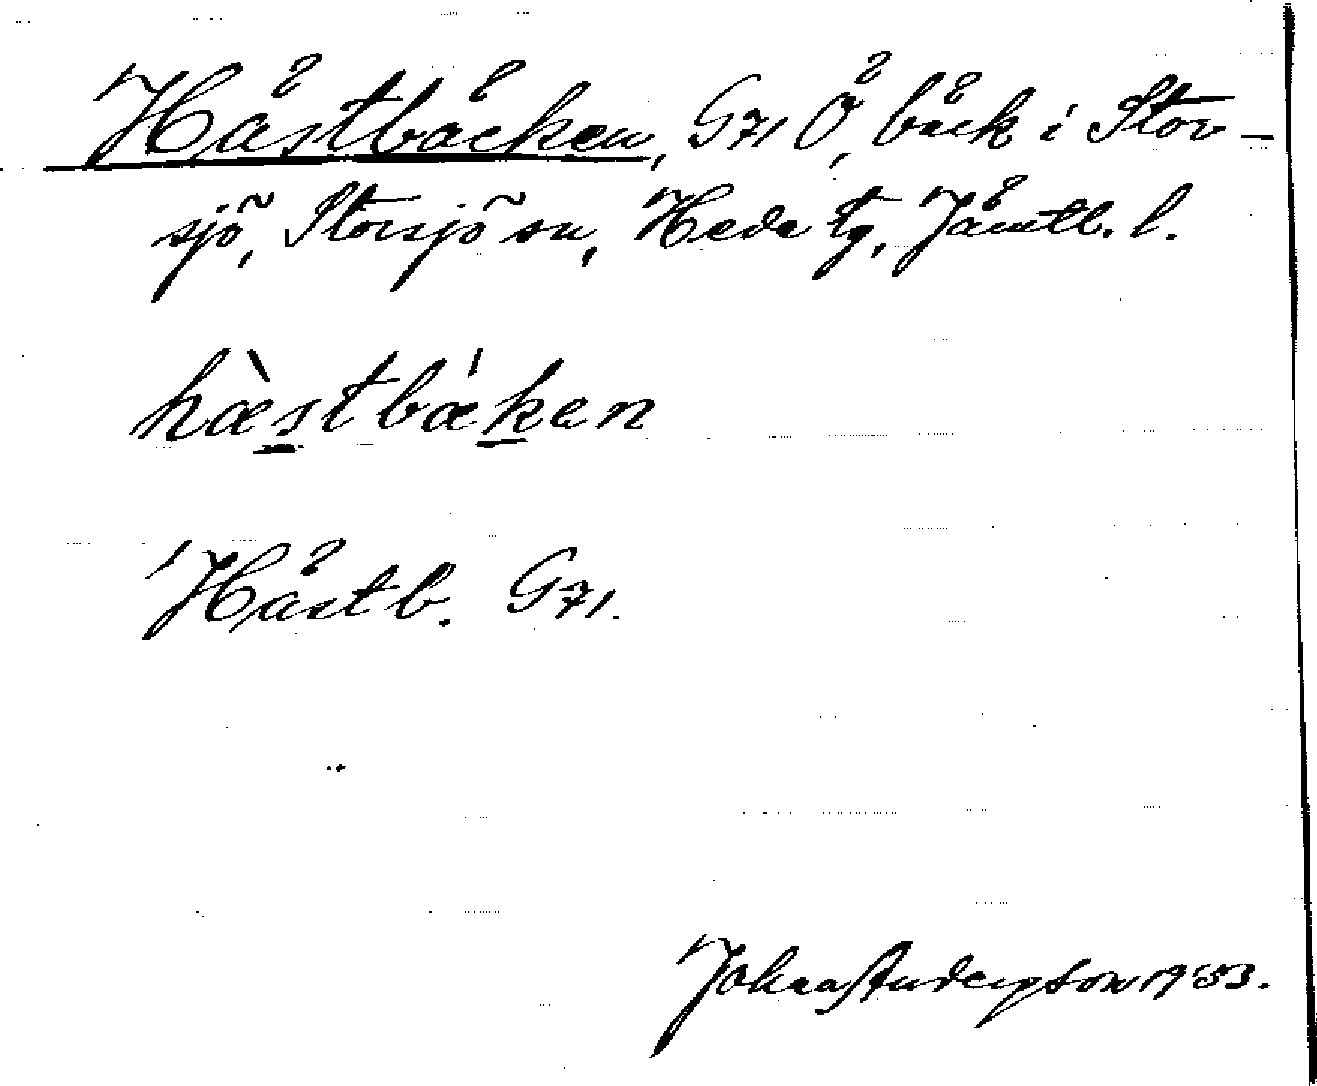 Hästbäcken, G71 Ö, bäck i Stor-
sjö, Storsjö sn, Hede tg, Jämtl. l.
hæ̀stbǽken
Hästb. G71.
Johan Anderson 1933.